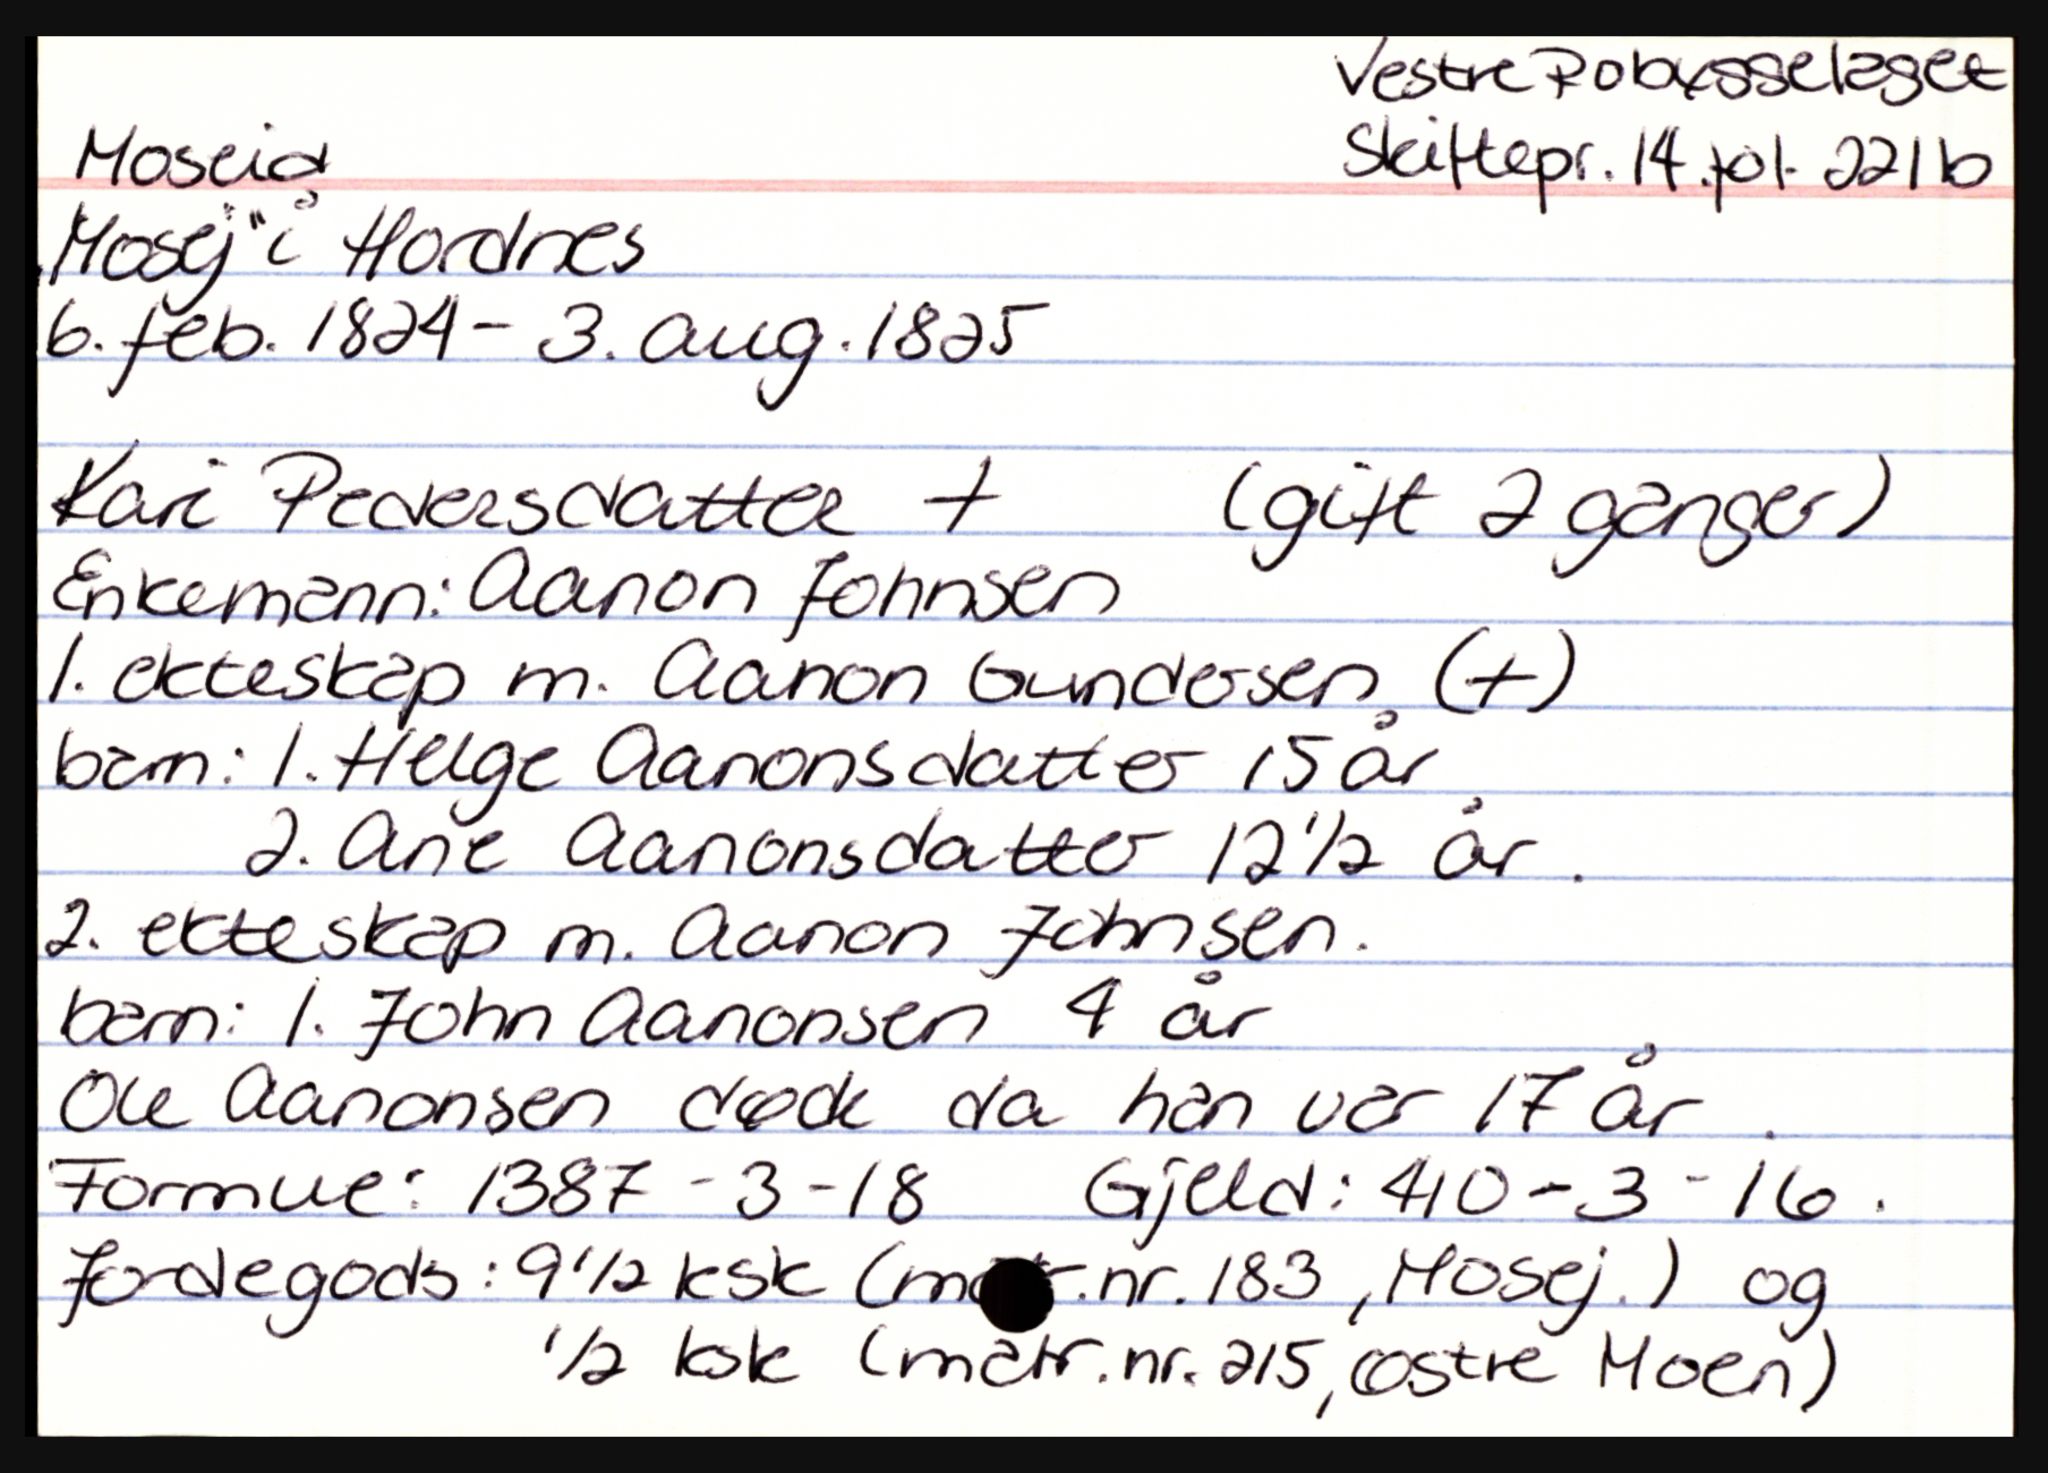 Vestre Robyggelaget
Skiftepr. 14. fol. 221b
Moseid
"Mosej" i Hordnes
6. feb. 1824 - 3. aug. 1825
Kari Pedersdatter + (gift 2 ganger)
Enkemann: Aanon Johnsen
1. ekteskap m. Aanon Gundersen (+)
barn: 1. Helge Aanonsdatter 15 år
2. Ane Aanonsdatter 12 1/2 år.
2. ekteskap m. Aanon Johnsen.
barn: 1. John Aanonsen 4 år
Ole Aanonsen døde da han var 17 år.
Formue: 1387 - 3 - 18 Gjeld: 410 - 3 - 16.
Jordegods: 9 1/2 ksk (matr.nr. 183, Mosej.) og
1/2 ksk (matr.nr. 215, østre Moen)